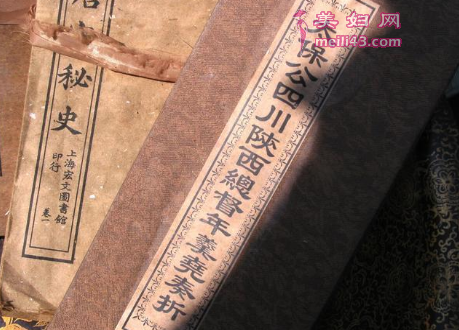 美妇网
meili43.com
太保公四川陝西總督年羹堯奏折
秘史
上海宏文圖書館
印行
卷一